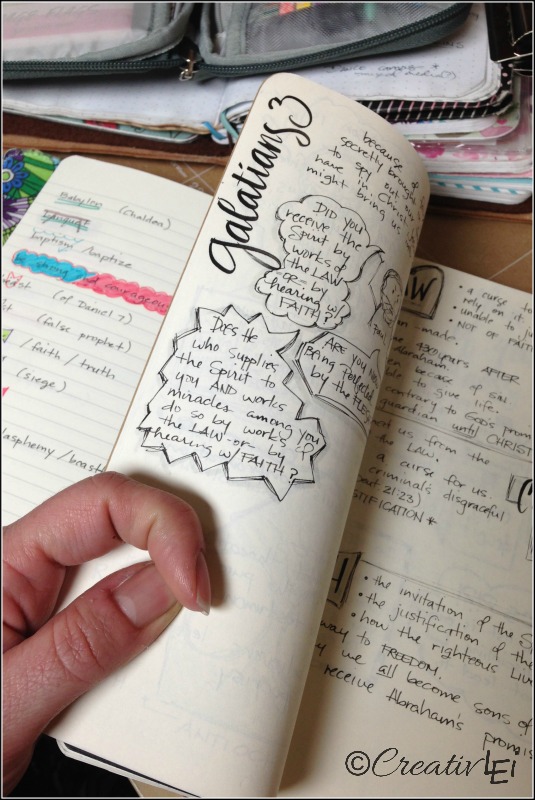 Babylon (Chaldea)
baptism /baptize
strong and courageous
(of Daniel 7)
(false prophet)
/faith /truth
(siege)
blasphemy /beast
galatians 3
because of
secretly brought
to spy out our
have in Christ
might bring us
DID you
receive the
Spirit by
works of
the LAW
-OR- by
hearing w/
FAITH?
DOES He
who supplies
the Spirit to
you AND works
miracles among you
do so by works of
the LAW -or- by
hearing w/ FAITH?
ARE you
BEING PERFECTED
by the FLESH
W
• a curse to
• rely on
• unable to
• NOT OF FAITH
AFTER
Abraham.
because of sin
to give life.
contrary to God's
guardian until CHRIST
us from the
the LAW.
a curse for us.
criminal's disgraceful
21:23)
JUSTIFICATION *
H
• the invitation of the
• the justification of the
• how the righteous
way to FREEDOM.
we all become sons of
receive Abraham's promise
©CreativLEI